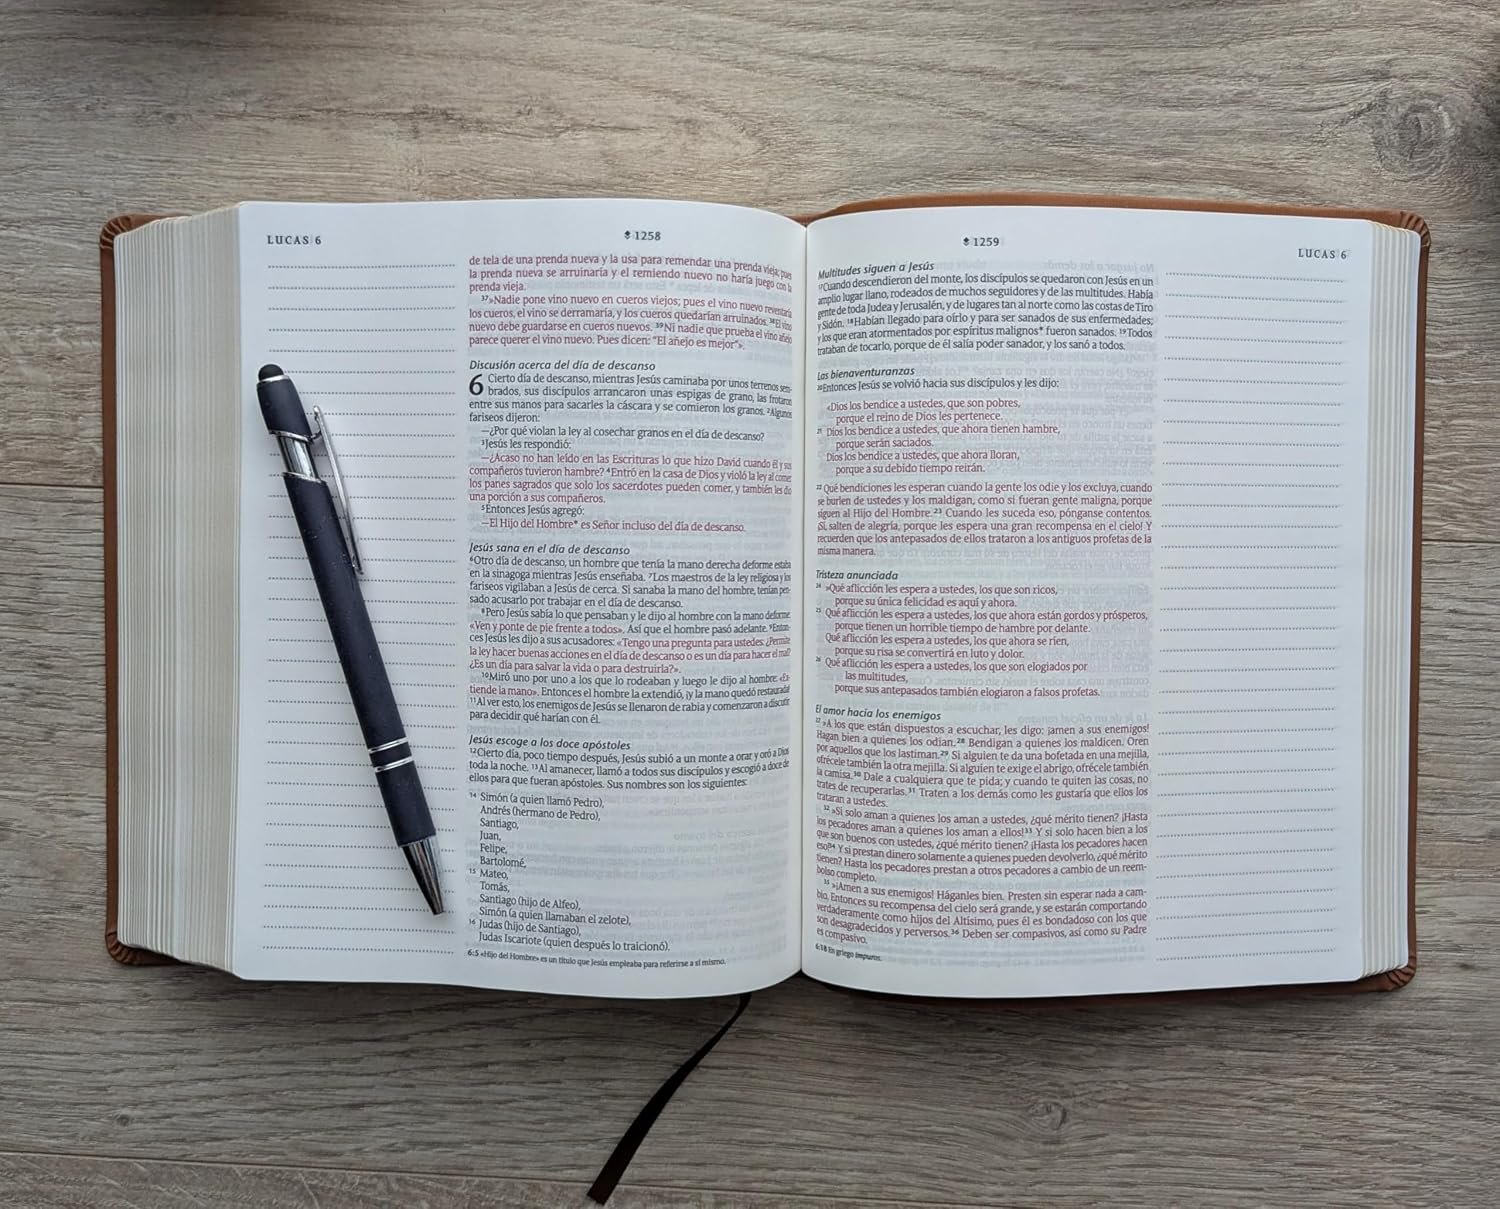 LUCAS 6
1258
de tela de una prenda nueva y la usa para remendar una prenda vieja; pues
la prenda nueva se arruinaría y el remiendo nuevo no haría juego con la
prenda vieja.
37»Nadie pone vino nuevo en cueros viejos; pues el vino nuevo reventaría
los cueros, el vino se derramaría, y los cueros quedarían arruinados. 38El vino
nuevo debe guardarse en cueros nuevos. 39Ni nadie que prueba el vino añejo
parece querer el vino nuevo. Pues dicen: "El añejo es mejor"».
Discusión acerca del día de descanso
6 Cierto día de descanso, mientras Jesús caminaba por unos terrenos sem-
brados, sus discípulos arrancaron unas espigas de grano, las frotaron
entre sus manos para sacarles la cáscara y se comieron los granos. 2Algunos
fariseos dijeron:
—¿Por qué violan la ley al cosechar granos en el día de descanso?
3Jesús les respondió:
—¿Acaso no han leído en las Escrituras lo que hizo David cuando él y sus
compañeros tuvieron hambre? 4Entró en la casa de Dios y violó la ley al comer
los panes sagrados que solo los sacerdotes pueden comer, y también les dio
una porción a sus compañeros.
5Entonces Jesús agregó:
—El Hijo del Hombre* es Señor incluso del día de descanso.
Jesús sana en el día de descanso
6Otro día de descanso, un hombre que tenía la mano derecha deforme estaba
en la sinagoga mientras Jesús enseñaba. 7Los maestros de la ley religiosa y los
fariseos vigilaban a Jesús de cerca. Si sanaba la mano del hombre, tenían pen-
sado acusarlo por trabajar en el día de descanso.
8Pero Jesús sabía lo que pensaban y le dijo al hombre con la mano deforme:
«Ven y ponte de pie frente a todos». Así que el hombre pasó adelante. 9Enton-
ces Jesús les dijo a sus acusadores: «Tengo una pregunta para ustedes: ¿Permite
la ley hacer buenas acciones en el día de descanso o es un día para hacer el mal?
¿Es un día para salvar la vida o para destruirla?».
10Miró uno por uno a los que lo rodeaban y luego le dijo al hombre: «Ex-
tiende la mano». Entonces el hombre la extendió, ¡y la mano quedó restaurada!
11Al ver esto, los enemigos de Jesús se llenaron de rabia y comenzaron a discutir
para decidir qué harían con él.
Jesús escoge a los doce apóstoles
12Cierto día, poco tiempo después, Jesús subió a un monte a orar y oró a Dios
toda la noche. 13Al amanecer, llamó a todos sus discípulos y escogió a doce de
ellos para que fueran apóstoles. Sus nombres son los siguientes:
14 Simón (a quien llamó Pedro),
Andrés (hermano de Pedro),
Santiago,
Juan,
Felipe,
Bartolomé,
15 Mateo,
Tomás,
Santiago (hijo de Alfeo),
Simón (a quien llamaban el zelote),
16 Judas (hijo de Santiago),
Judas Iscariote (quien después lo traicionó).
6:5 «Hijo del Hombre» es un título que Jesús empleaba para referirse a sí mismo.
1259
LUCAS 6
Multitudes siguen a Jesús
17Cuando descendieron del monte, los discípulos se quedaron con Jesús en un
amplio lugar llano, rodeados de muchos seguidores y de las multitudes. Había
gente de toda Judea y Jerusalén, y de lugares tan al norte como las costas de Tiro
y Sidón. 18Habían llegado para oírlo y para ser sanados de sus enfermedades;
y los que eran atormentados por espíritus malignos* fueron sanados. 19Todos
trataban de tocarlo, porque de él salía poder sanador, y los sanó a todos.
Las bienaventuranzas
20Entonces Jesús se volvió hacia sus discípulos y les dijo:
«Dios los bendice a ustedes, que son pobres,
porque el reino de Dios les pertenece.
21 Dios los bendice a ustedes, que ahora tienen hambre,
porque serán saciados.
Dios los bendice a ustedes, que ahora lloran,
porque a su debido tiempo reirán.
22 Qué bendiciones les esperan cuando la gente los odie y los excluya, cuando
se burlen de ustedes y los maldigan, como si fueran gente maligna, porque
siguen al Hijo del Hombre. 23 Cuando les suceda eso, pónganse contentos.
¡Sí, salten de alegría, porque les espera una gran recompensa en el cielo! Y
recuerden que los antepasados de ellos trataron a los antiguos profetas de la
misma manera.
Tristeza anunciada
24 »Qué aflicción les espera a ustedes, los que son ricos,
porque su única felicidad es aquí y ahora.
25 Qué aflicción les espera a ustedes, los que ahora están gordos y prósperos,
porque tienen un horrible tiempo de hambre por delante.
Qué aflicción les espera a ustedes, los que ahora se ríen,
porque su risa se convertirá en luto y dolor.
26 Qué aflicción les espera a ustedes, los que son elogiados por
las multitudes,
porque sus antepasados también elogiaron a falsos profetas.
El amor hacia los enemigos
27 »A los que están dispuestos a escuchar, les digo: ¡amen a sus enemigos!
Hagan bien a quienes los odian. 28 Bendigan a quienes los maldicen. Oren
por aquellos que los lastiman. 29 Si alguien te da una bofetada en una mejilla,
ofrécele también la otra mejilla. Si alguien te exige el abrigo, ofrécele también
la camisa. 30 Dale a cualquiera que te pida; y cuando te quiten las cosas, no
trates de recuperarlas. 31 Traten a los demás como les gustaría que ellos los
trataran a ustedes.
32 »Si solo aman a quienes los aman a ustedes, ¿qué mérito tienen? ¡Hasta
los pecadores aman a quienes los aman a ellos! 33 Y si solo hacen bien a los
que son buenos con ustedes, ¿qué mérito tienen? ¡Hasta los pecadores hacen
eso! 34 Y si prestan dinero solamente a quienes pueden devolverlo, ¿qué mérito
tienen? Hasta los pecadores prestan a otros pecadores a cambio de un reem-
bolso completo.
35 »¡Amen a sus enemigos! Háganles bien. Presten sin esperar nada a cam-
bio. Entonces su recompensa del cielo será grande, y se estarán comportando
verdaderamente como hijos del Altísimo, pues él es bondadoso con los que
son desagradecidos y perversos. 36 Deben ser compasivos, así como su Padre
es compasivo.
6:18 En griego impuros.